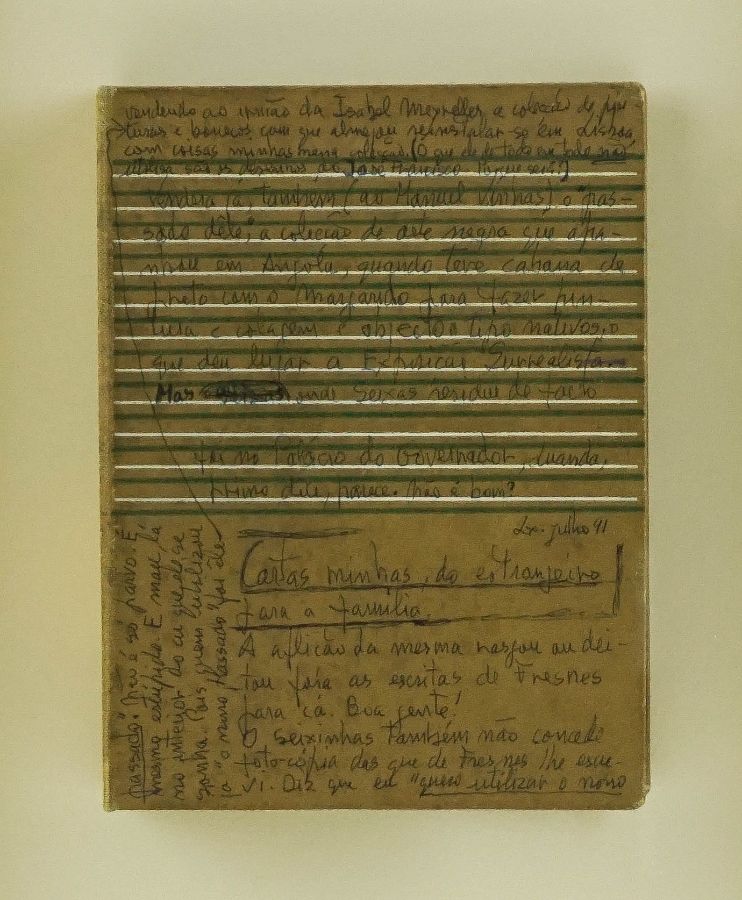 vendendo ao irmão da Isabel Meyrelles a colecção de pin-
turas e bonecos com que almejou reinstalar-se em Lisboa
com coisas minhas nessa colecção. (O que de de todo em todo não
utiliza são os desenhos do José Francisco. Porque será?)
Vendera já, também (ao Manuel Vinhas) o "pas-
sado dêle", a colecção de arte negra que apa-
nhou em Angola, quando teve cabana de
preto com o Margarido para fazer pin-
tura e colagem e objectos tipo nativos, o
que deu lugar a Exposição "Surrealista".
Mas onde Seixas residiu de facto
foi no Palácio do Governador, Luanda,
primo dele, parece. Não é bom?
Lx. julho 91
Cartas minhas, do estranjeiro
para a família.
A aflição da mesma rasgou ou dei-
tou fora as escritas de Fresnes
para cá. Boa gente!
O Seixinhas também não concede
foto-cópia das que de Fresnes lhe escre-
vi. Diz que eu "quero utilizar o nosso
passado". Não é só parvo. É
mesmo estúpido. E mau, lá
no interior do cu que de se
ganha. Pois quem utilizou
já "o nosso Passado" foi ele